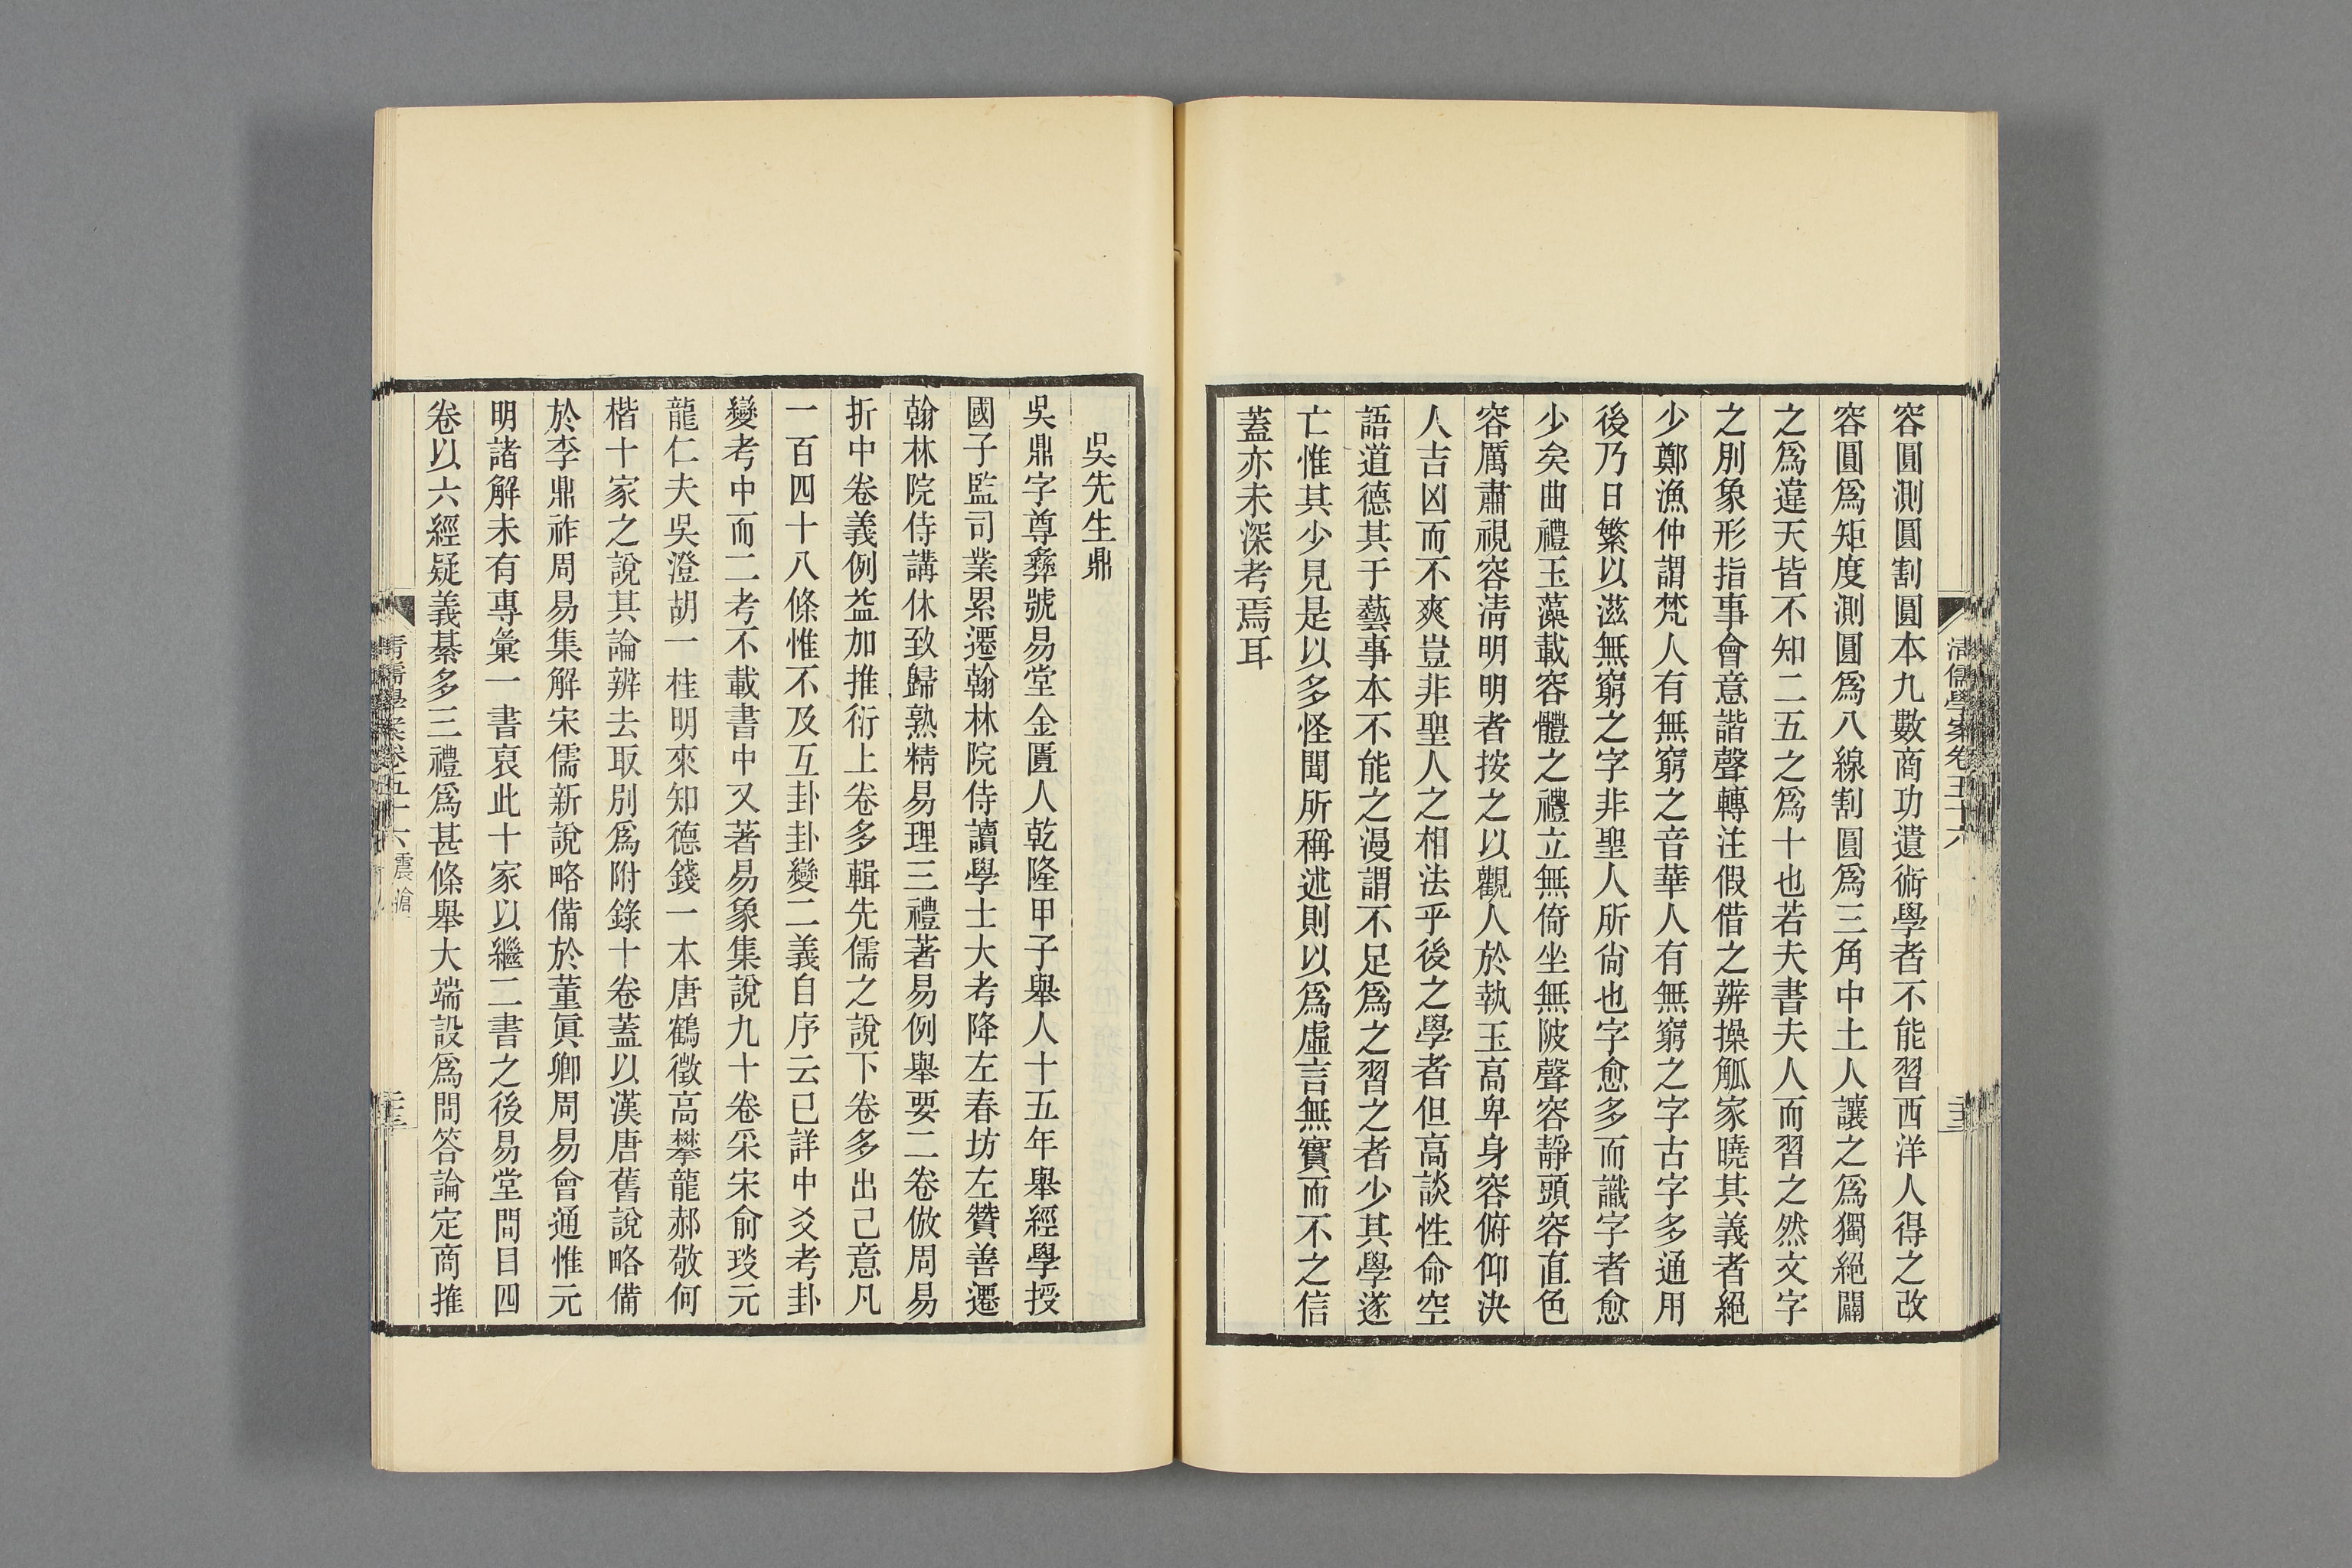 清儒學案卷五十六
容圓測圓割圓本九數商功遺術學者不能習西洋人得之改
容圓爲矩度測圓爲八線割圓爲三角中土人讓之爲獨絕闢
之爲違天皆不知二五之爲十也若夫書夫人而習之然文字
之別象形指事會意諧聲轉注假借之辨操觚家曉其義者絕
少鄭漁仲謂梵人有無窮之音華人有無窮之字古字多通用
後乃日繁以滋無窮之字非聖人所尙也字愈多而識字者愈
少矣曲禮玉藻載容體之禮立無倚坐無陂聲容靜頭容直色
容厲肅視容淸明明者按之以觀人於執玉高卑身容俯仰決
人吉凶而不爽豈非聖人之相法乎後之學者但高談性命空
語道德其于藝事本不能之漫謂不足爲之習之者少其學遂
亡惟其少見是以多怪聞所稱述則以爲虛言無實而不之信
蓋亦未深考焉耳
吳先生鼎
吳鼎字尊彝號易堂金匱人乾隆甲子舉人十五年舉經學授
國子監司業累遷翰林院侍讀學士大考降左春坊左贊善遷
翰林院侍講休致歸熟精易理三禮著易例舉要二卷倣周易
折中卷義例益加推衍上卷多輯先儒之說下卷多出己意凡
一百四十八條惟不及互卦卦變二義自序云已詳中爻考卦
變考中而二考不載書中又著易象集說九十卷采宋俞琰元
龍仁夫吳澄胡一桂明來知德錢一本唐鶴徵高攀龍郝敬何
楷十家之說其論辨去取別爲附錄十卷蓋以漢唐舊說略備
於李鼎祚周易集解宋儒新說略備於董眞卿周易會通惟元
明諸解未有專彙一書裒此十家以繼二書之後易堂問目四
卷以六經疑義綦多三禮爲甚條舉大端設爲問答論定商推